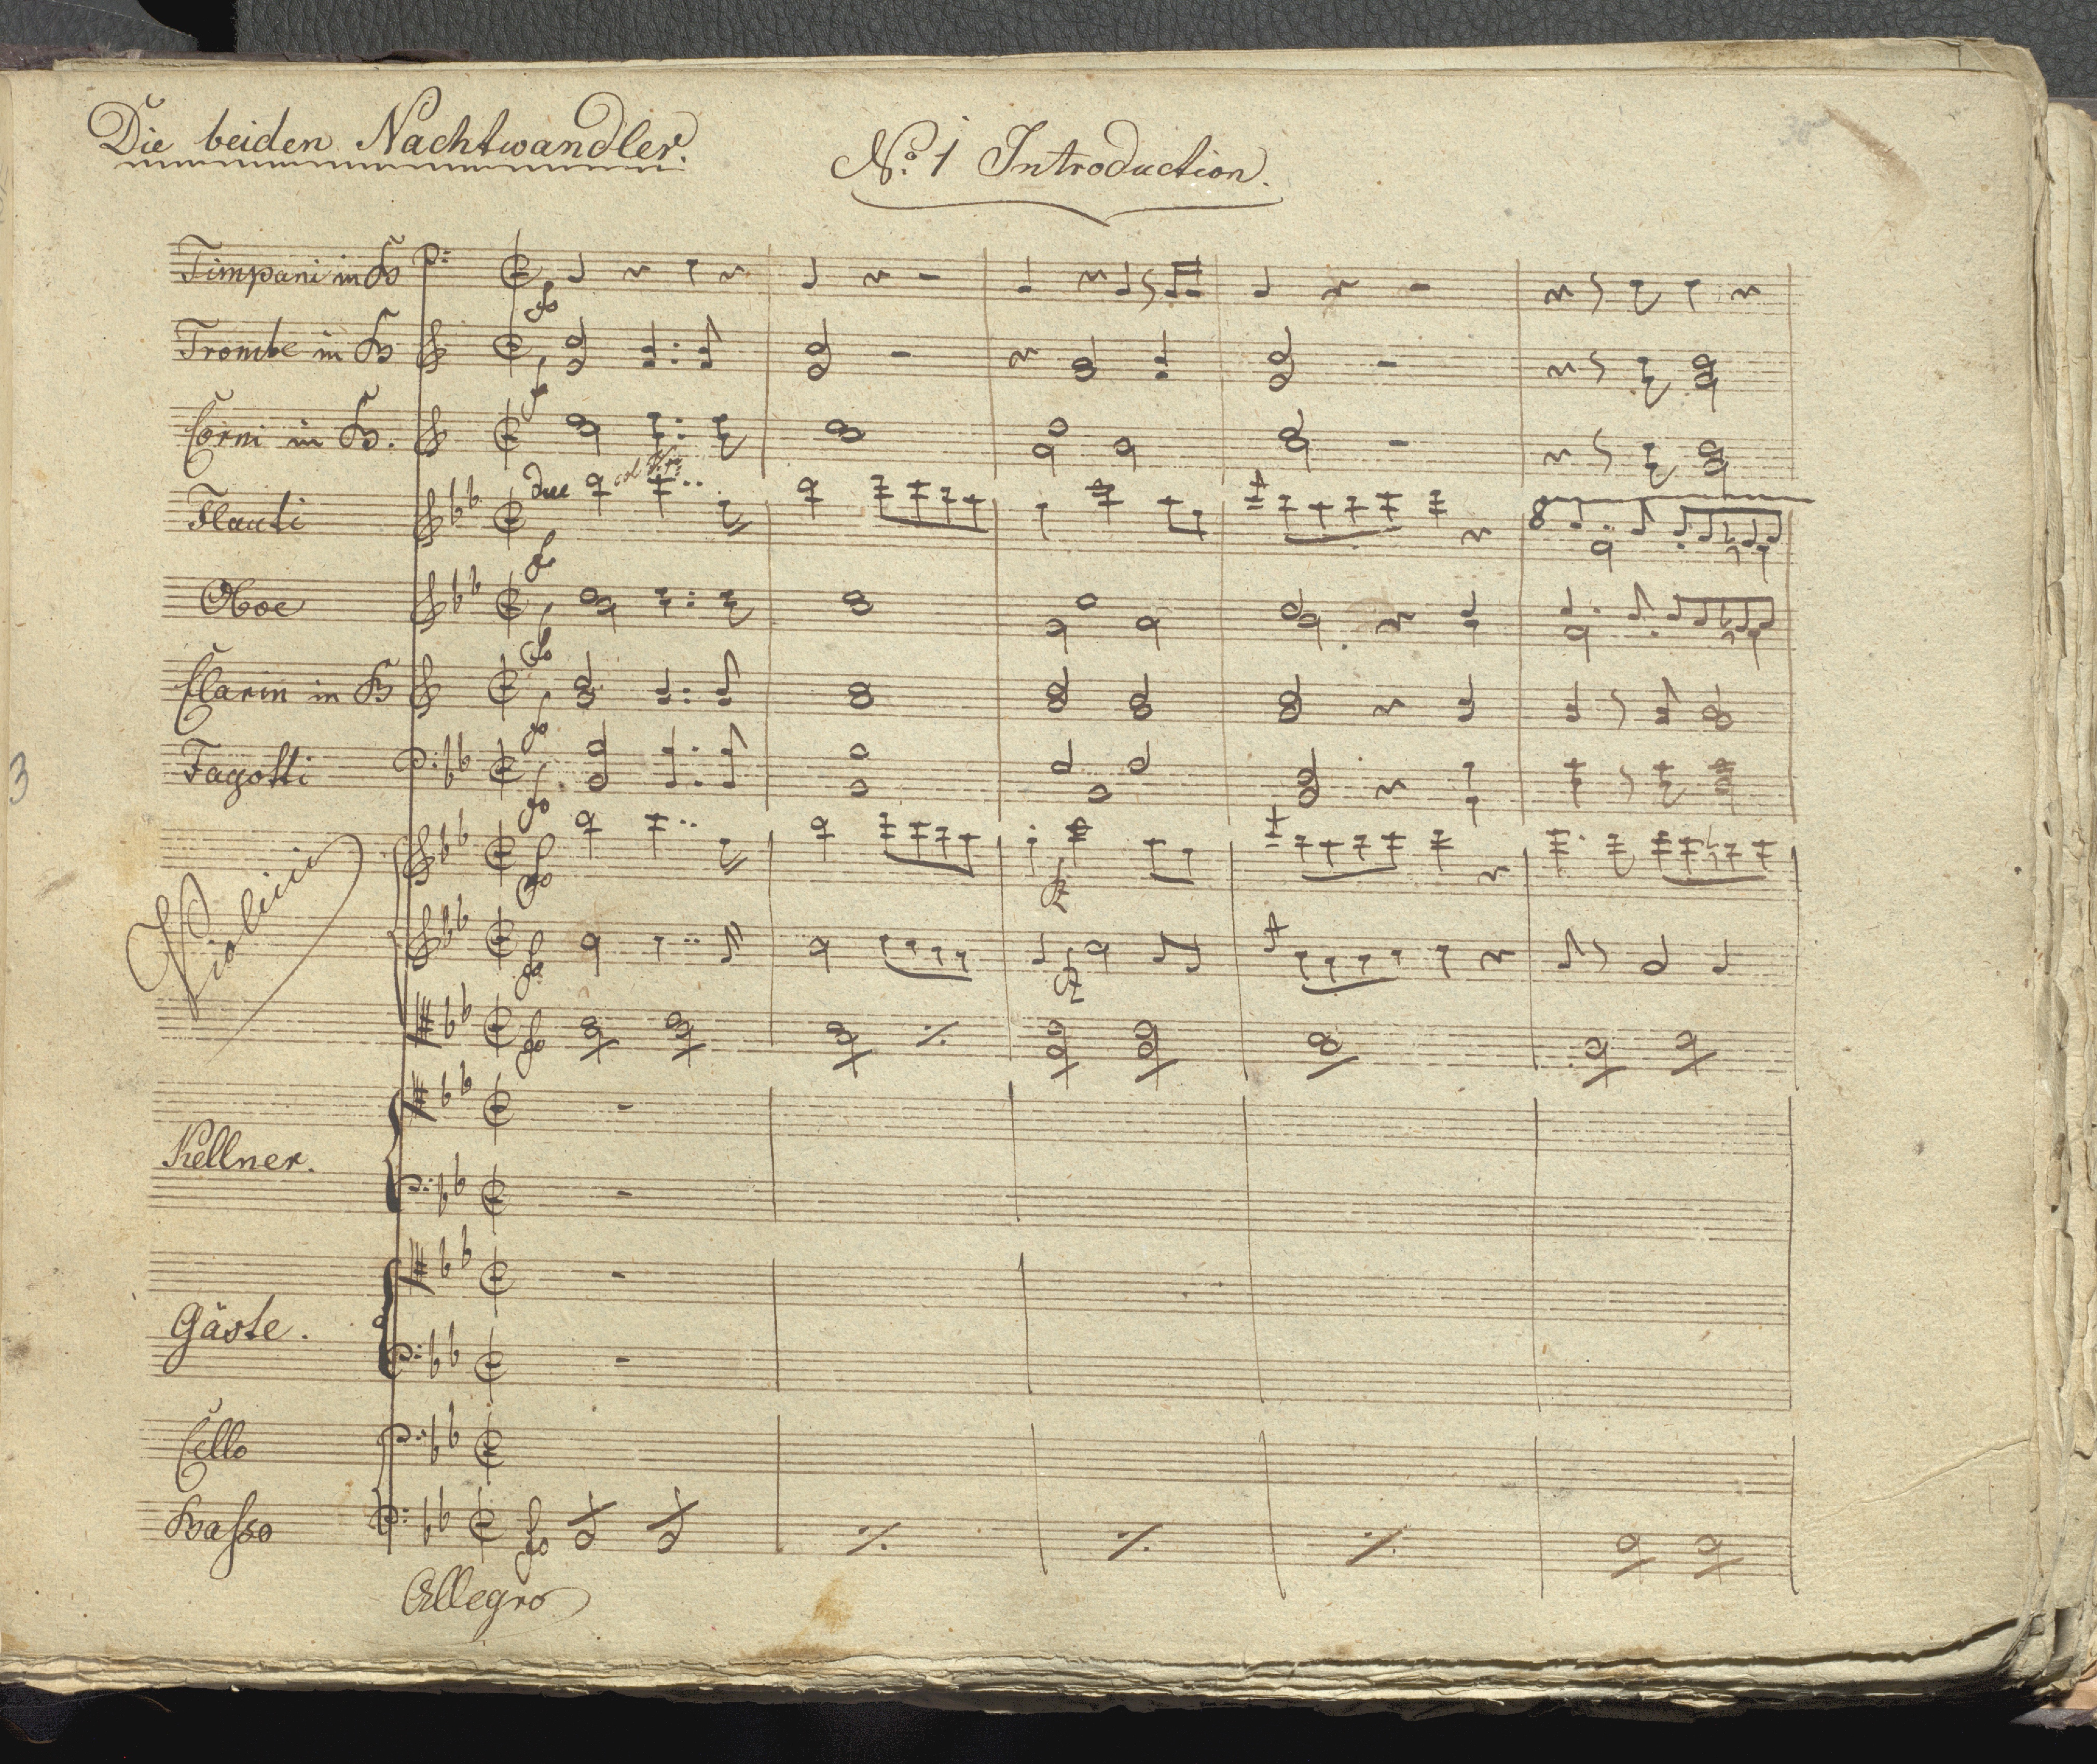 Die beiden Nachtwandler.
No. 1 Introduction.
Timpani in B
Trombe in B
Corni in B.
Flauti
due
8
Oboe
Clarin in B
Fagotti
3
Violini
Kellner.
Gäste.
Cello
Basso
fo
Allegro